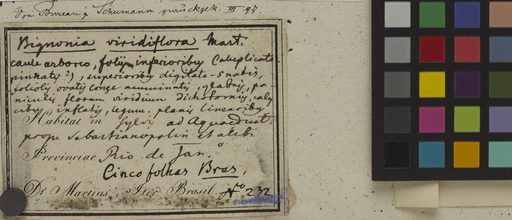 Von Bureau & Schumann zurückgek. III. 97.
Bignonia viridiflora Mart.
caule arboreo, foliis inferioribus
pinnatis, superioribus digitato-5natis,
foliolis ovatis acuminatis, glabris, pa-
niculis florum viridium dichotomis, caly-
cibus inflatis, legum. planis linearibus
Habitat in sylvis ad Aquaeduct.
prope Sebastianopolin et alibi
Provinciae Rio de Jan.
Cinco folhas Bras.
Dr. Martius Iter Brasil. No 232